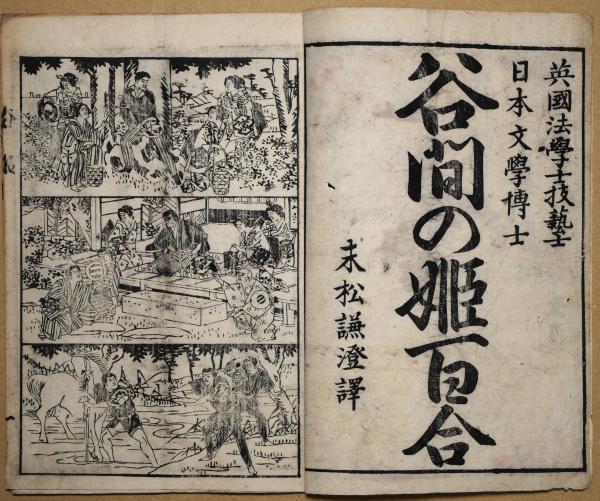 英國法學士技藝士
日本文學博士
谷間の姬百合
末松謙澄譯